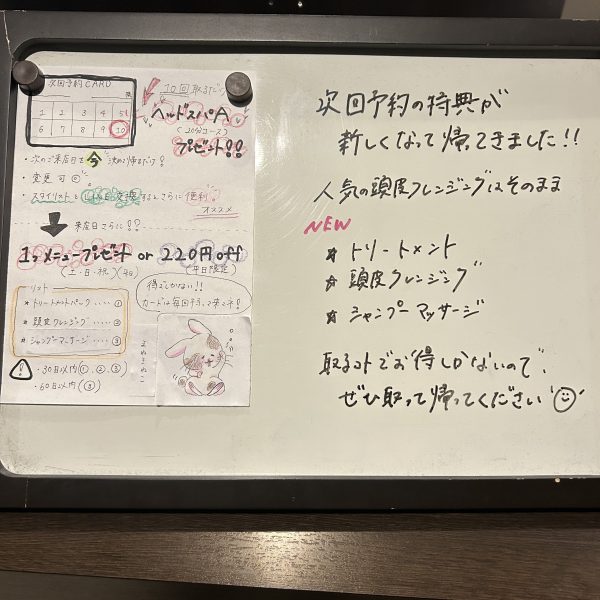 次回予約CARD
1 2 3 4 5
6 7 8 9 10
10回取るだけ
ヘッドスパA
(20分コース)
プレゼント!!
・次のご来店日を今決めて帰るだけ!
・変更可
・スタイリストと LINE交換するとさらに便利
オススメ
来店日さらに!!
1つメニュープレゼント or 220円off
(土・日・祝)(平日) (平日限定)
リスト
* トリートメントパック‥‥①
* 頭皮クレンジング‥‥②
* シャンプーマッサージ‥‥③
得しかない!!
カードは毎回持って来てネ!
! ・30日以内(①、②、③)
・60日以内(③)
まねきねこ
次回予約の特典が
新しくなって帰ってきました!!
人気の頭皮クレンジングはそのまま
NEW
* トリートメント
* 頭皮クレンジング
* シャンプーマッサージ
取るコトでお得しかないので、
ぜひ取って帰ってください